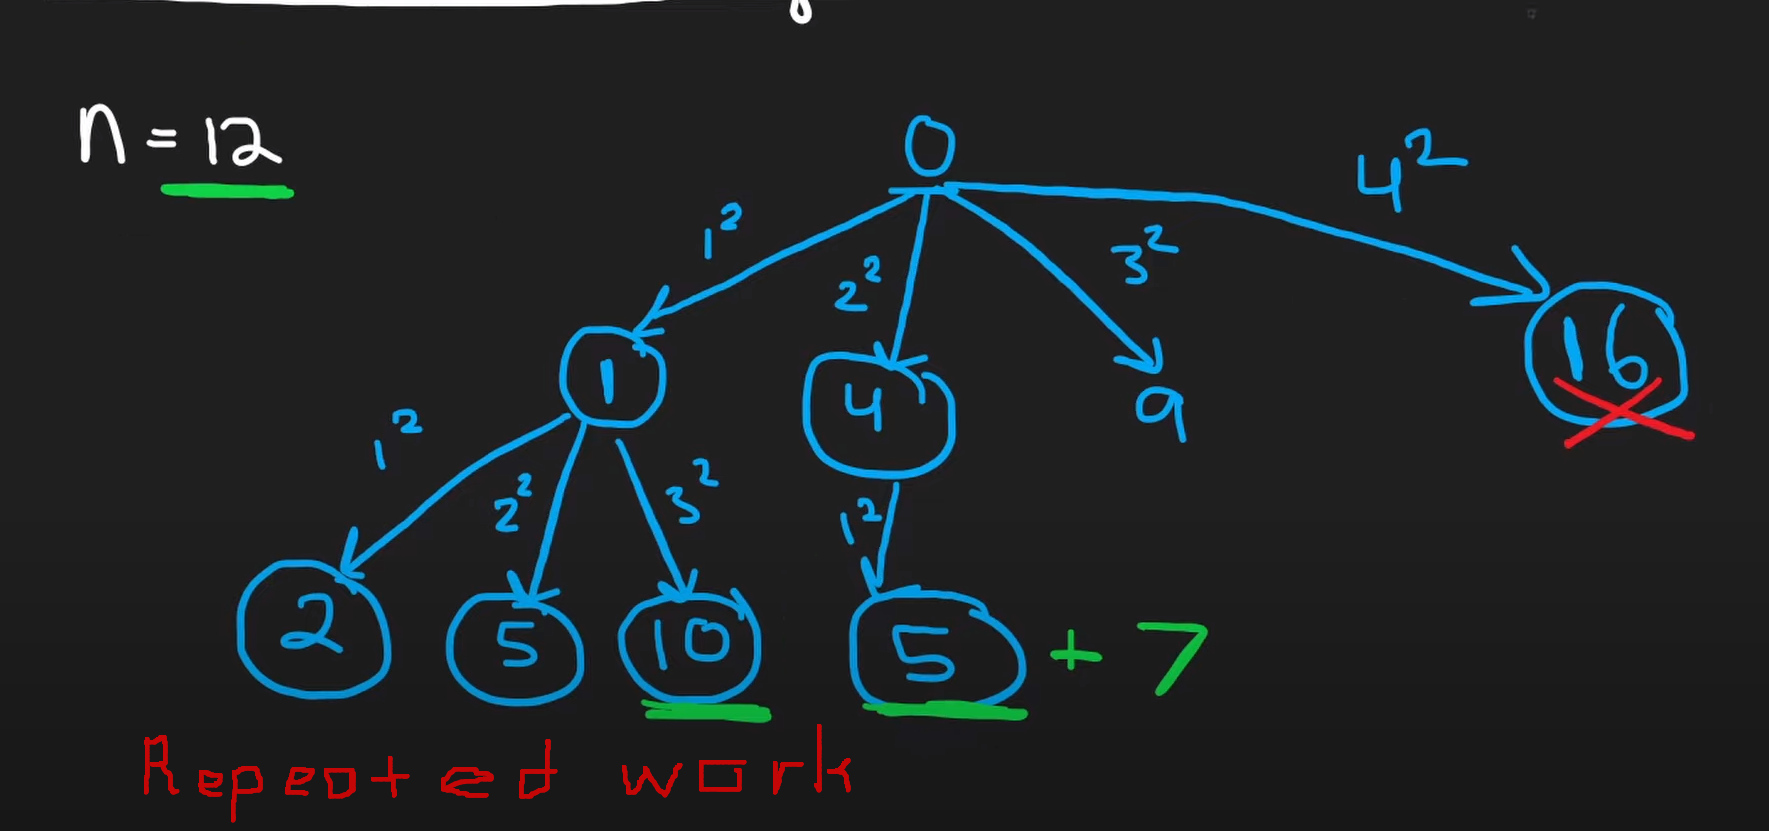 n = 12
0
1² 2² 3² 4²
1 4 9 16
1² 2² 3² 1²
2 5 10 5 + 7
Repeated work